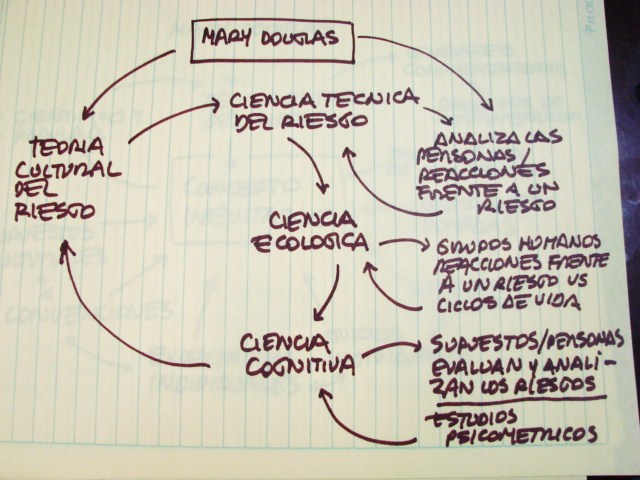 MARY DOUGLAS
CIENCIA TECNICA
DEL RIESGO
TEORIA
CULTURAL
DEL
RIESGO
ANALIZA LAS
PERSONAS/
REACCIONES
FRENTE A UN
RIESGO
CIENCIA
ECOLOGICA
GRUPOS HUMANOS
REACCIONES FRENTE
A UN RIESGO VS
CICLOS DE VIDA
CIENCIA
COGNITIVA
SUPUESTOS/PERSONAS
EVALUAN Y ANALI-
ZAN LOS RIESGOS
ESTUDIOS
PSICOMETRICOS